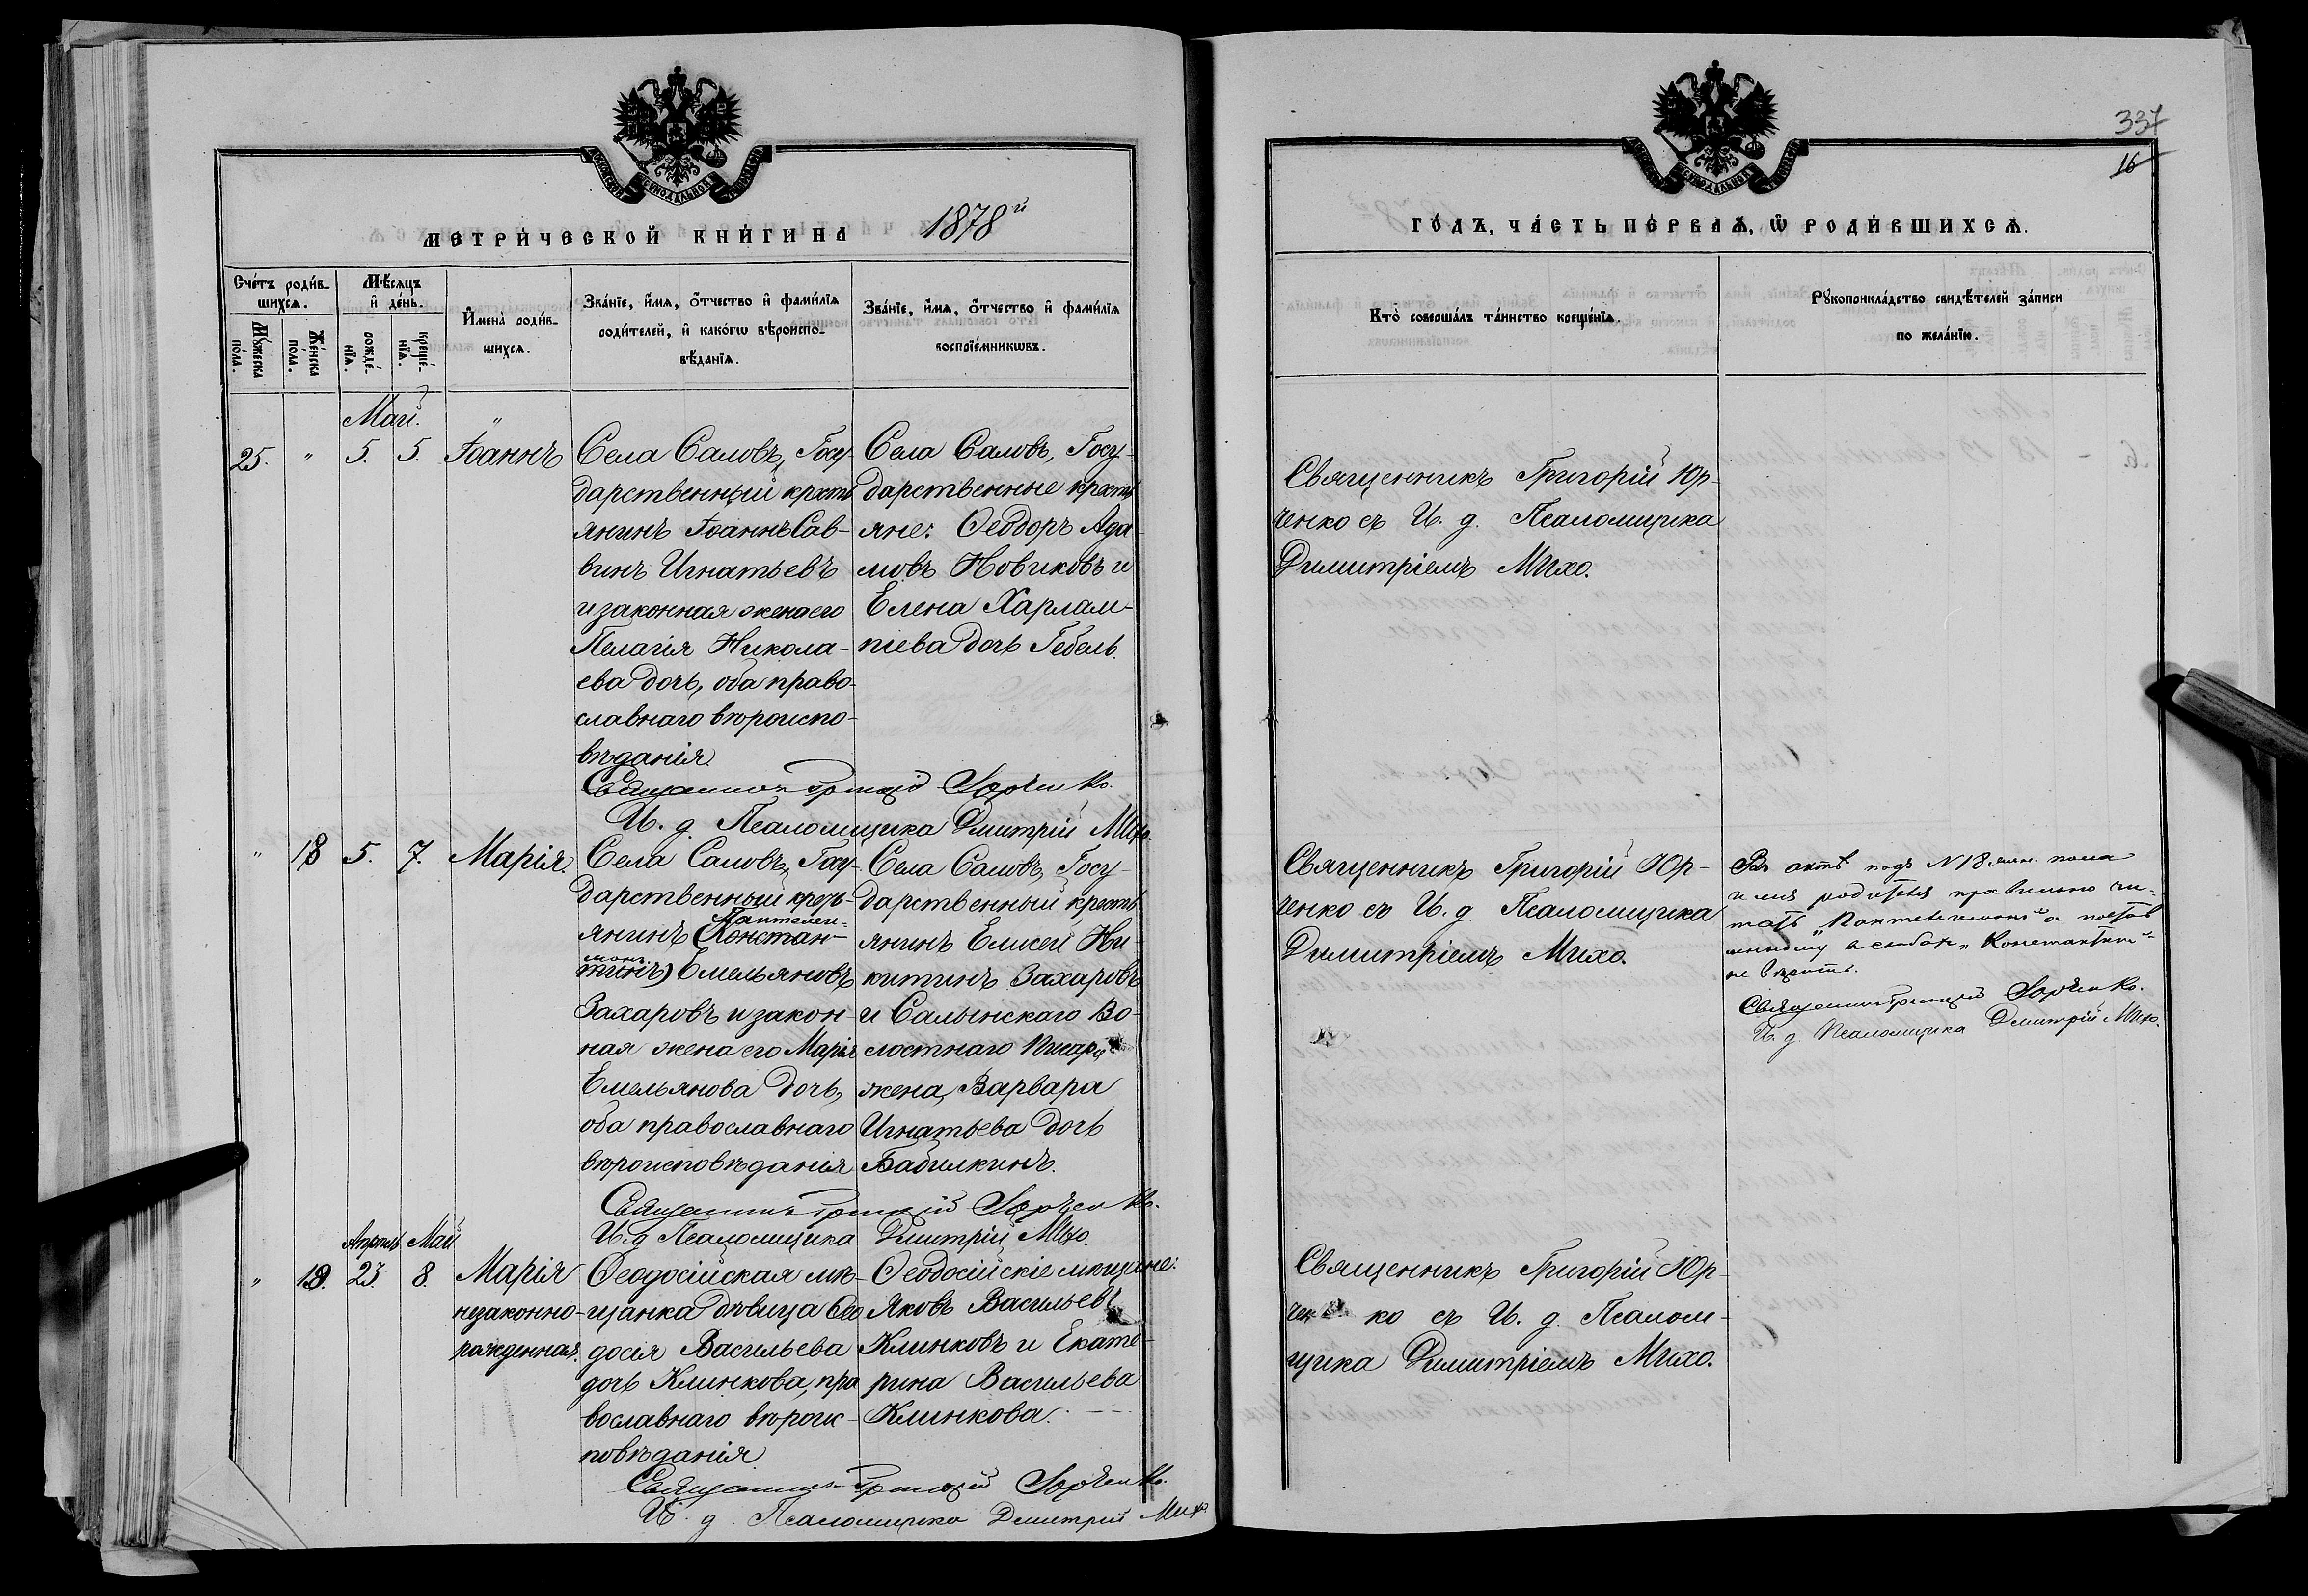 337
16
МЕТРИ́ЧЕСКОЙ КНИ́ГИ НА 1878й
ГО́ДЪ, ЧА́СТЬ ПЕ́РВАѦ, Ѿ РОДИ́ВШИХСѦ.
Сче́тъ роди́в-
шихсѧ.
Мꙋ́жеска
по́ла.
Же́нска
по́ла.
Мѣ́сѧцъ
и҆ де́нь.
рожде́-
нїѧ.
креще́-
нїѧ.
И҆мена̀ роди́в-
шихсѧ.
Зва́нїе, и҆́мѧ, ѻ҆́тчество и҆ фами́лїѧ
роди́телей, и҆ како́гѡ вѣроиспо-
вѣ́данїѧ.
Зва́нїе, и҆́мѧ, ѻ҆́тчество и҆ фами́лїѧ
воспрїе́мникѡвъ.
Кто̀ соверша́лъ та́инство креще́нїѧ.
Рꙋкоприкла́дство свидѣ́телей за́писи
по жела́нїю.
Май.
25. " 5. 5. Іоаннъ
Села Саловъ, Госу-
дарственный кресть
янинъ Іоаннъ Сав-
винъ Игнатьевъ
и законная жена его
Пелагія Никола-
ева дочь, оба право-
славнаго вѣроиспо-
вѣданія.
Села Саловъ, Госу-
дарственные кресть
яне: Ѳеодоръ Ада-
мовъ Новиковъ и
Елена Харлам-
піева дочь Гебель.
Священникъ Григорій Юр-
ченко съ И. д. Псаломщика
Димитріемъ Михо.
Священникъ Григорій Юрченко.
И. д. Псаломщика Дмитрій Михо.
" 18 5. 7. Марія.
Села Саловъ, Госу-
дарственный кресть-
Пантелеи-
янинъ (Констан-
монъ
тинъ) Емельяновъ
Захаровъ и закон-
ная жена его Марія
Емельянова дочь,
оба православнаго
вѣроисповѣданія
Села Саловъ, Госу-
дарственный кресть
янинъ Елисей Ни-
китинъ Захаровъ
и Салынскаго Во-
лостнаго Писаря
жена, Варвара
Игнатьева дочь
Бабилкинъ.
Священникъ Григорій Юр-
ченко съ И. д. Псаломщика
Димитріемъ Михо.
Въ актѣ подъ N 18 жен. пола
имя родителя правильно чи-
тать „Пантелеимонъ“ а постав
ленному в скобах „Константинъ“
не вѣрить.
Священникъ Григорій Юрченко.
И. д. Псаломщика Дмитрій Михо.
Священникъ Григорій Юрченко.
И. д. Псаломщика Дмитрій Михо.
Апрѣль Май
" 19. 23 8. Марія
незаконно-
рожденная.
Ѳеодосійская мѣ-
щанка дѣвица Ѳео
досія Васильева
дочь Клинкова, пра
вославнаго вѣроис-
повѣданія
Ѳеодосійскіе мѣщане:
Яковъ Васильевъ
Клинковъ и Екате-
рина Васильева
Клинкова.
Священникъ Григорій Юр-
чен ко съ И. д. Псалом-
щика Димитріемъ Михо.
Священникъ Григорій Юрченко.
И. д. Псаломщика Дмитрій Михо